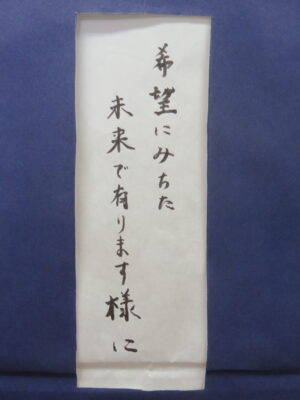 希望にみちた
未来で有ります様に